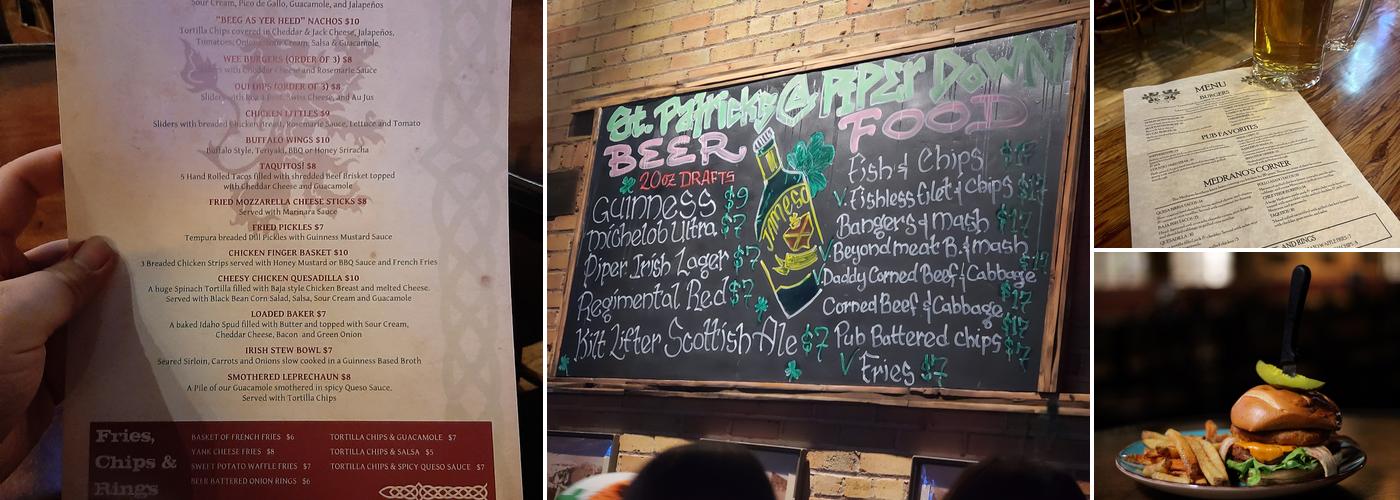 Sour Cream, Pico de Gallo, Guacamole, and Jalapeños
"BEEG AS YER HEED" NACHOS $10
Tortilla Chips covered in Cheddar & Jack Cheese, Jalapeños,
Tomatoes, Sour Cream, Salsa & Guacamole
WEE BURGERS (ORDER OF 3) $8
with Cheddar Cheese and Rosemarie Sauce
OUI DIPS (ORDER OF 3) $8
Sliders with Roast Beef, Swiss Cheese, and Au Jus
CHICKEN LITTLES $9
Sliders with breaded Chicken Breast, Rosemarie Sauce, Lettuce and Tomato
BUFFALO WINGS $10
Buffalo Style, Teriyaki, BBQ or Honey Sriracha
TAQUITOS! $8
5 Hand Rolled Tacos filled with shredded Beef Brisket topped
with Cheddar Cheese and Guacamole
FRIED MOZZARELLA CHEESE STICKS $8
Served with Marinara Sauce
FRIED PICKLES $7
Tempura breaded Dill Pickles with Guinness Mustard Sauce
CHICKEN FINGER BASKET $10
3 Breaded Chicken Strips served with Honey Mustard or BBQ Sauce and French Fries
CHEESY CHICKEN QUESADILLA $10
A huge Spinach Tortilla filled with Baja style Chicken Breast and melted Cheese.
Served with Black Bean Corn Salad, Salsa, Sour Cream and Guacamole
LOADED BAKER $7
A baked Idaho Spud filled with Butter and topped with Sour Cream,
Cheddar Cheese, Bacon and Green Onion
IRISH STEW BOWL $7
Seared Sirloin, Carrots and Onions slow cooked in a Guinness Based Broth
SMOTHERED LEPRECHAUN $8
A Pile of our Guacamole smothered in spicy Queso Sauce.
Served with Tortilla Chips
Fries,
Chips &
Rings
BASKET OF FRENCH FRIES $6
YANK CHEESE FRIES $8
SWEET POTATO WAFFLE FRIES $7
BEER BATTERED ONION RINGS $6
TORTILLA CHIPS & GUACAMOLE $7
TORTILLA CHIPS & SALSA $5
TORTILLA CHIPS & SPICY QUESO SAUCE $7
St. Patricks @ PIPER DOWN
BEER
20oz DRAFTS
Guinness $9
Michelob Ultra $7
Piper Irish Lager $7
Regimental Red $7
Kilt Lifter Scottish Ale $7
JAMESON
FOOD
Fish & Chips $17
V. Fishless filet & Chips $17
Bangers & Mash $17
V. Beyond meat B. & mash $17
V. Daddy Corned Beef & Cabbage $17
Corned Beef & Cabbage $17
Pub Battered chips $7
V Fries $7
MENU
BURGERS
PUB FAVORITES
MEDRANO'S CORNER